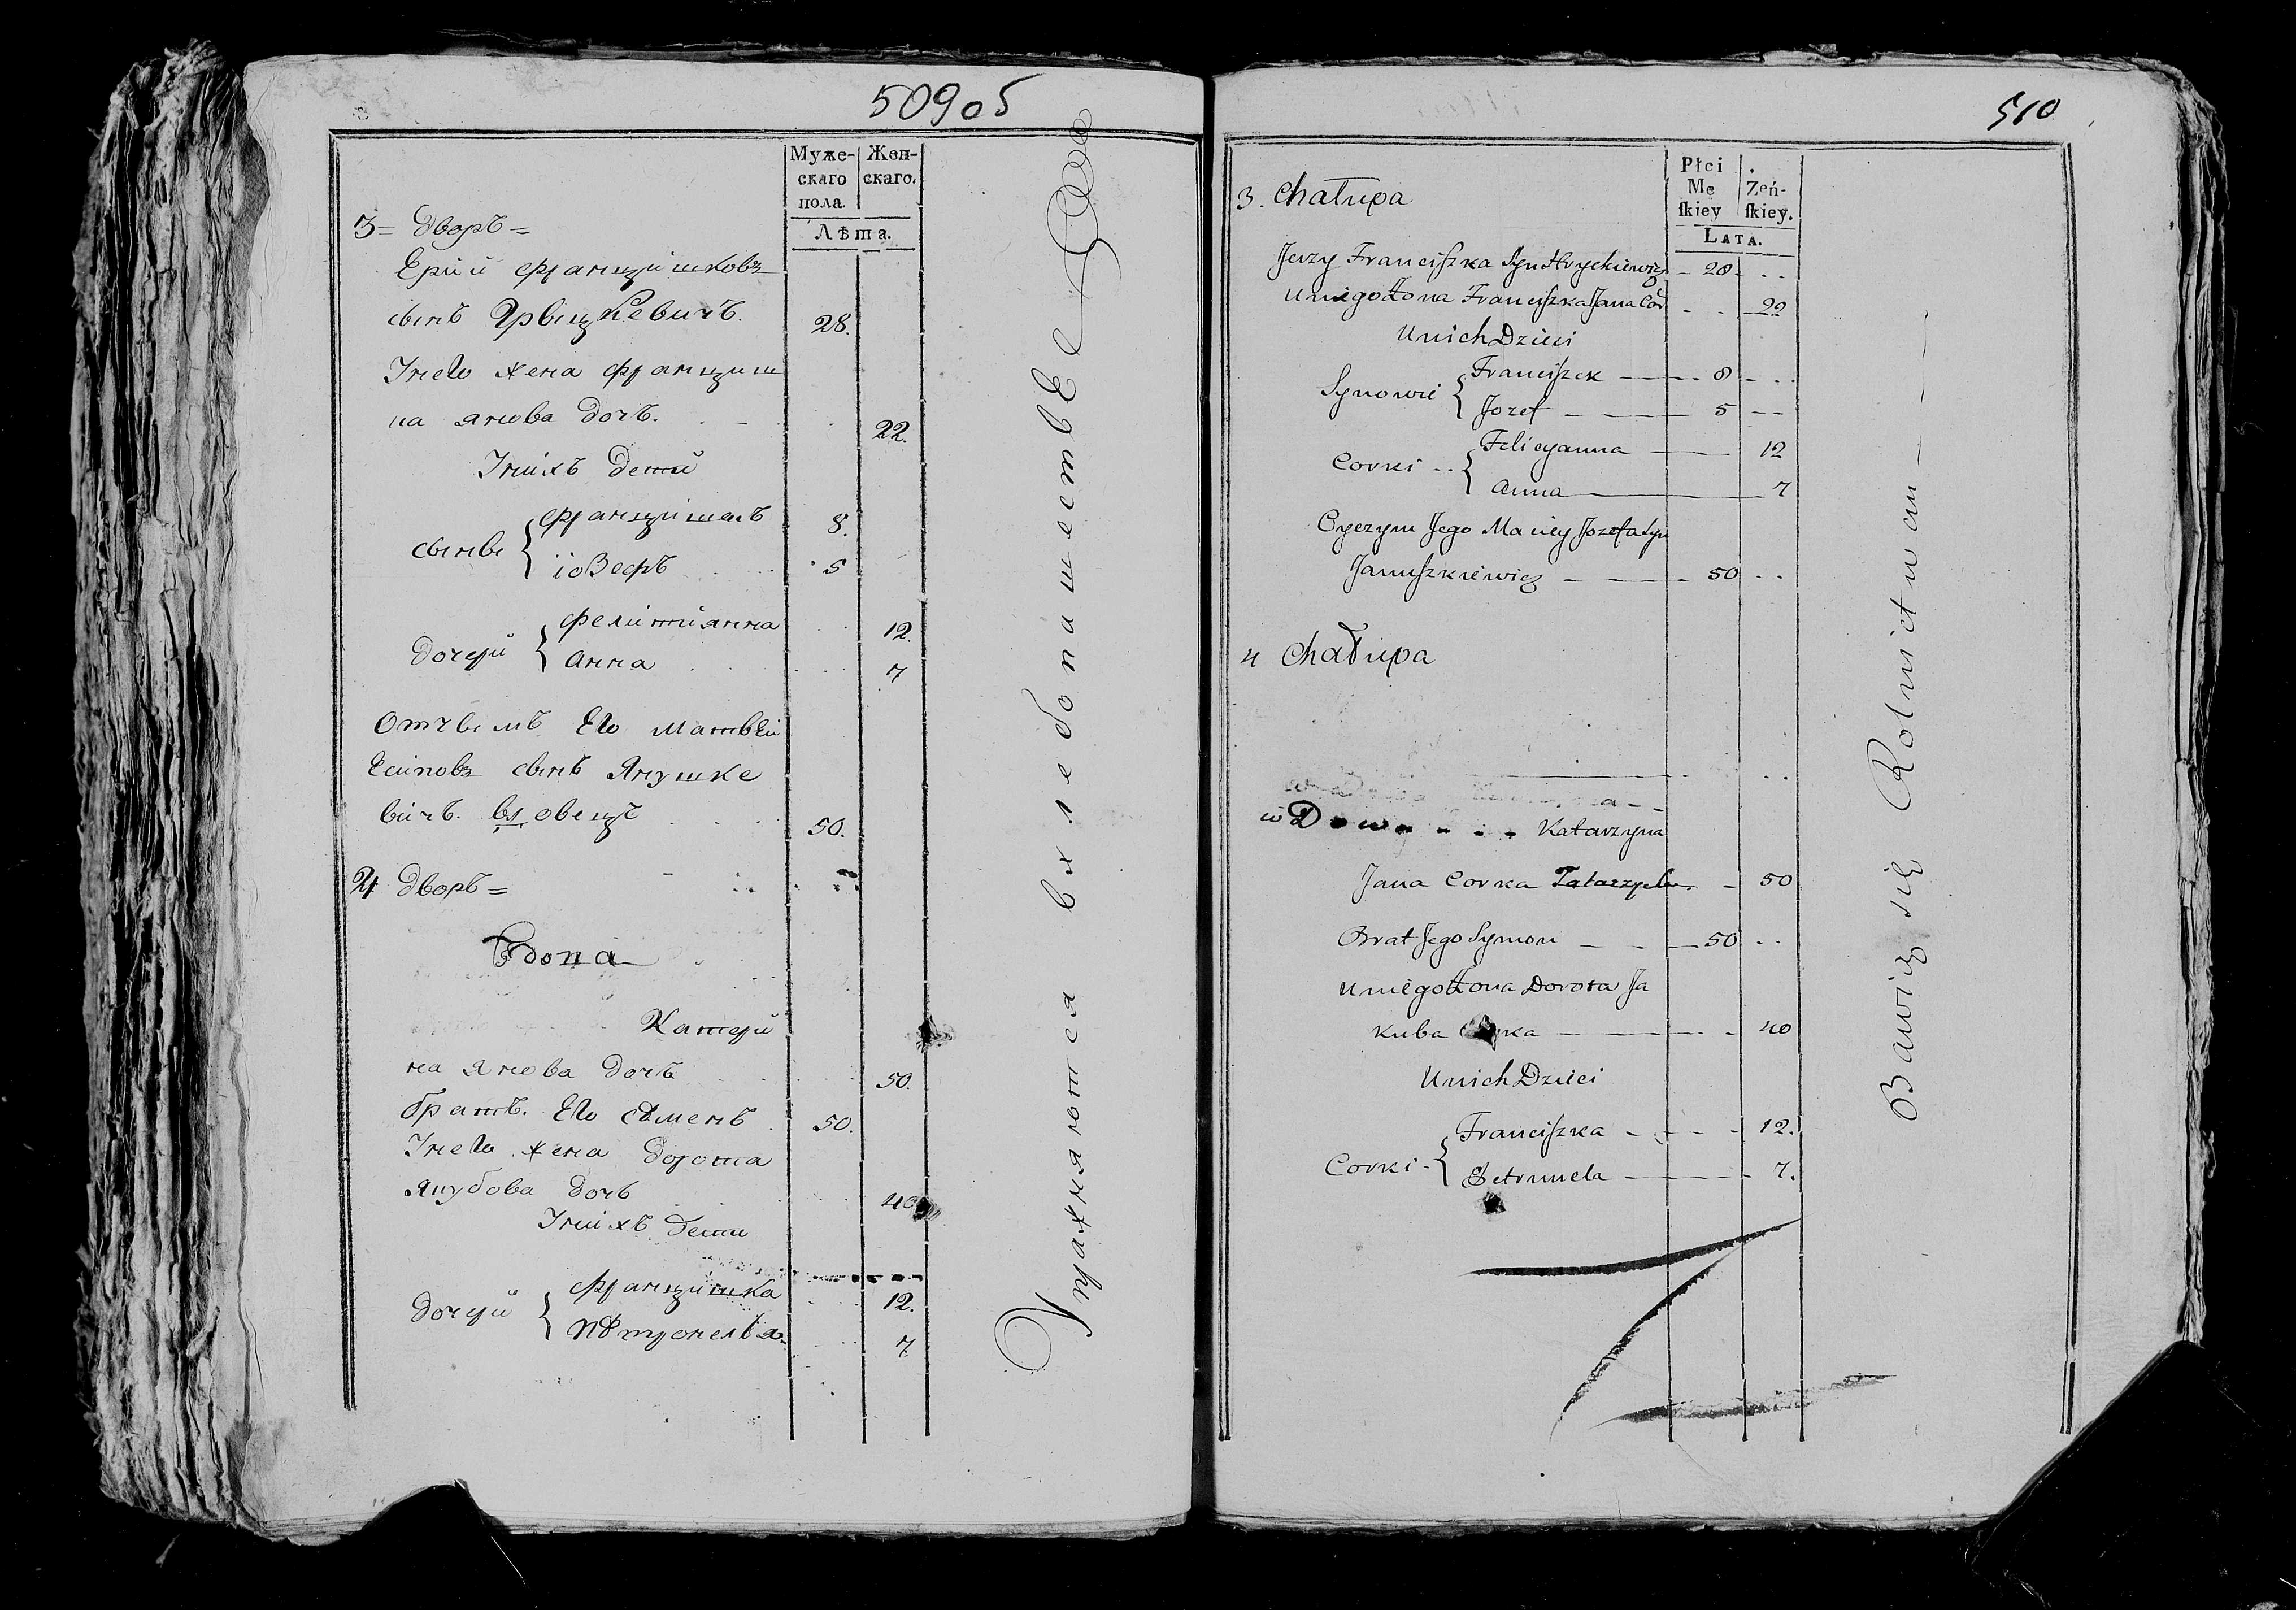 509об
Муже-
скаго
пола.
Жен-
скаго.
Лѣта.
3= дворъ=
Ерій францишковъ
сынъ Грыцкевичъ. 28.
Унего жена франциш
ка янова дочъ. 22.
Унихъ дети
сыны { францишекъ 8.
іозефъ 5
дочери { фелиціянна 12.
анна 7
Отчымъ Его матвѣи
Есиповъ сынъ Янушке
вичъ. 50.
4 дворъ=
Вдова
Катери
на янова дочъ 50.
братъ Его сѣменъ 50.
Унего жена дорота
якубова дочъ 40
Унихъ дети
дочери { францишка 12.
пѣтронеля 7
Упражняются в хлебопашестве
510
Płci
Mę
ſkiey
Zeń-
ſkiey.
LATA.
3. Chałupa
Jerzy Franciſzka Syn Hryckiewicz 28
Uniego Żona Franciſzka Jana Cor 22
Unich Dzieci
Synowie { Franciſzek 8
Jozef 5
Corki { Felicyanna 12
Anna 7
Oyczym Jego Maciey Jozefa Syn
Januſzkiewicz 50
4 Chałupa
Katarzyna
Jana Corka 50
Brat Jego Symon 50
Uniego Żona Dorota Ja
kuba Corka 40
Unich Dzieci
Corki { Franciſzka 12.
Petrunela 7.
Bawią się Rolnictwem